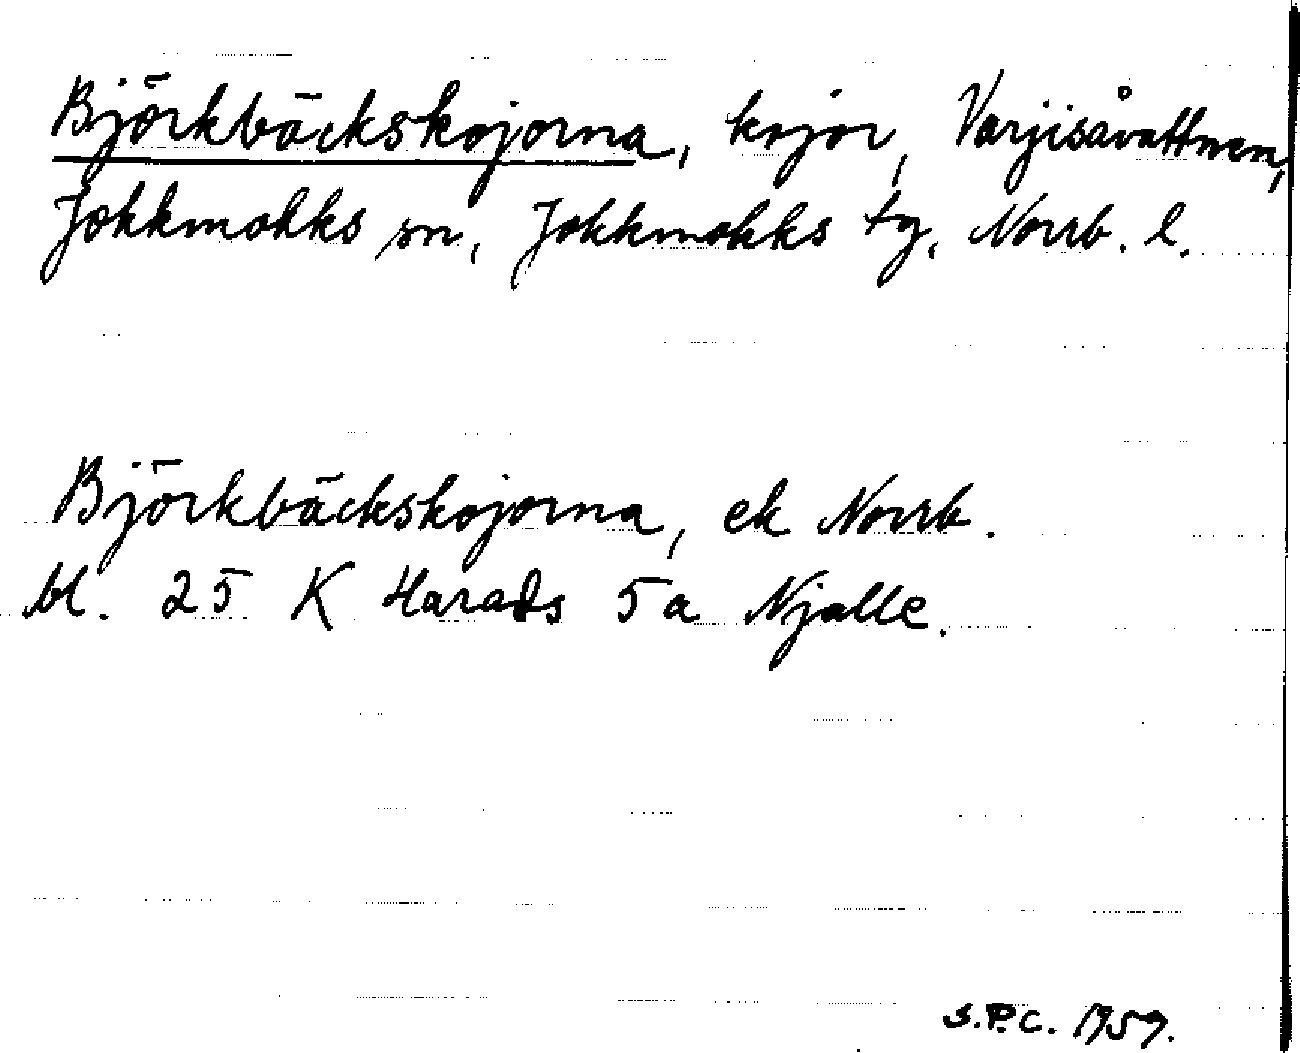 Björkbäckskojorna, kojor, Varjisåvattnen,
Jokkmokks sn, Jokkmokks tg, Norrb. l.
Björkbäckskojorna, ek Norrb.
bl. 25 K Harads 5a Njalle.
S.P.C. 1959.